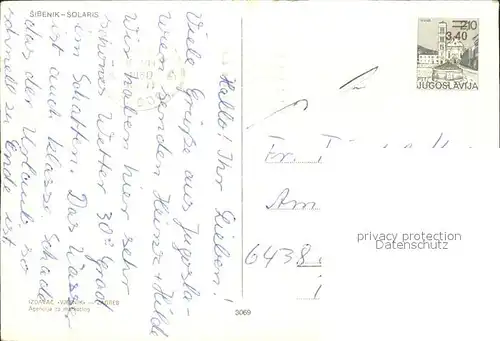 ŠIBENIK-SOLARIS
Hallo! Ihr Lieben!
Viele Grüße aus Jugosla-
wien senden Heinz + Hilde
Wir haben hier sehr
schönes Wetter 30° Grad
im Schatten. Das Wasser
ist auch klasse. Schade
das der Urlaub so
schnell zu Ende ist
IZDAVAČ »VJESNIK« — ZAGREB
Agencija za marketing
3069
2.10
3.40
JUGOSLAVIJA
Fr.
Am
6438
privacy protection
Datenschutz